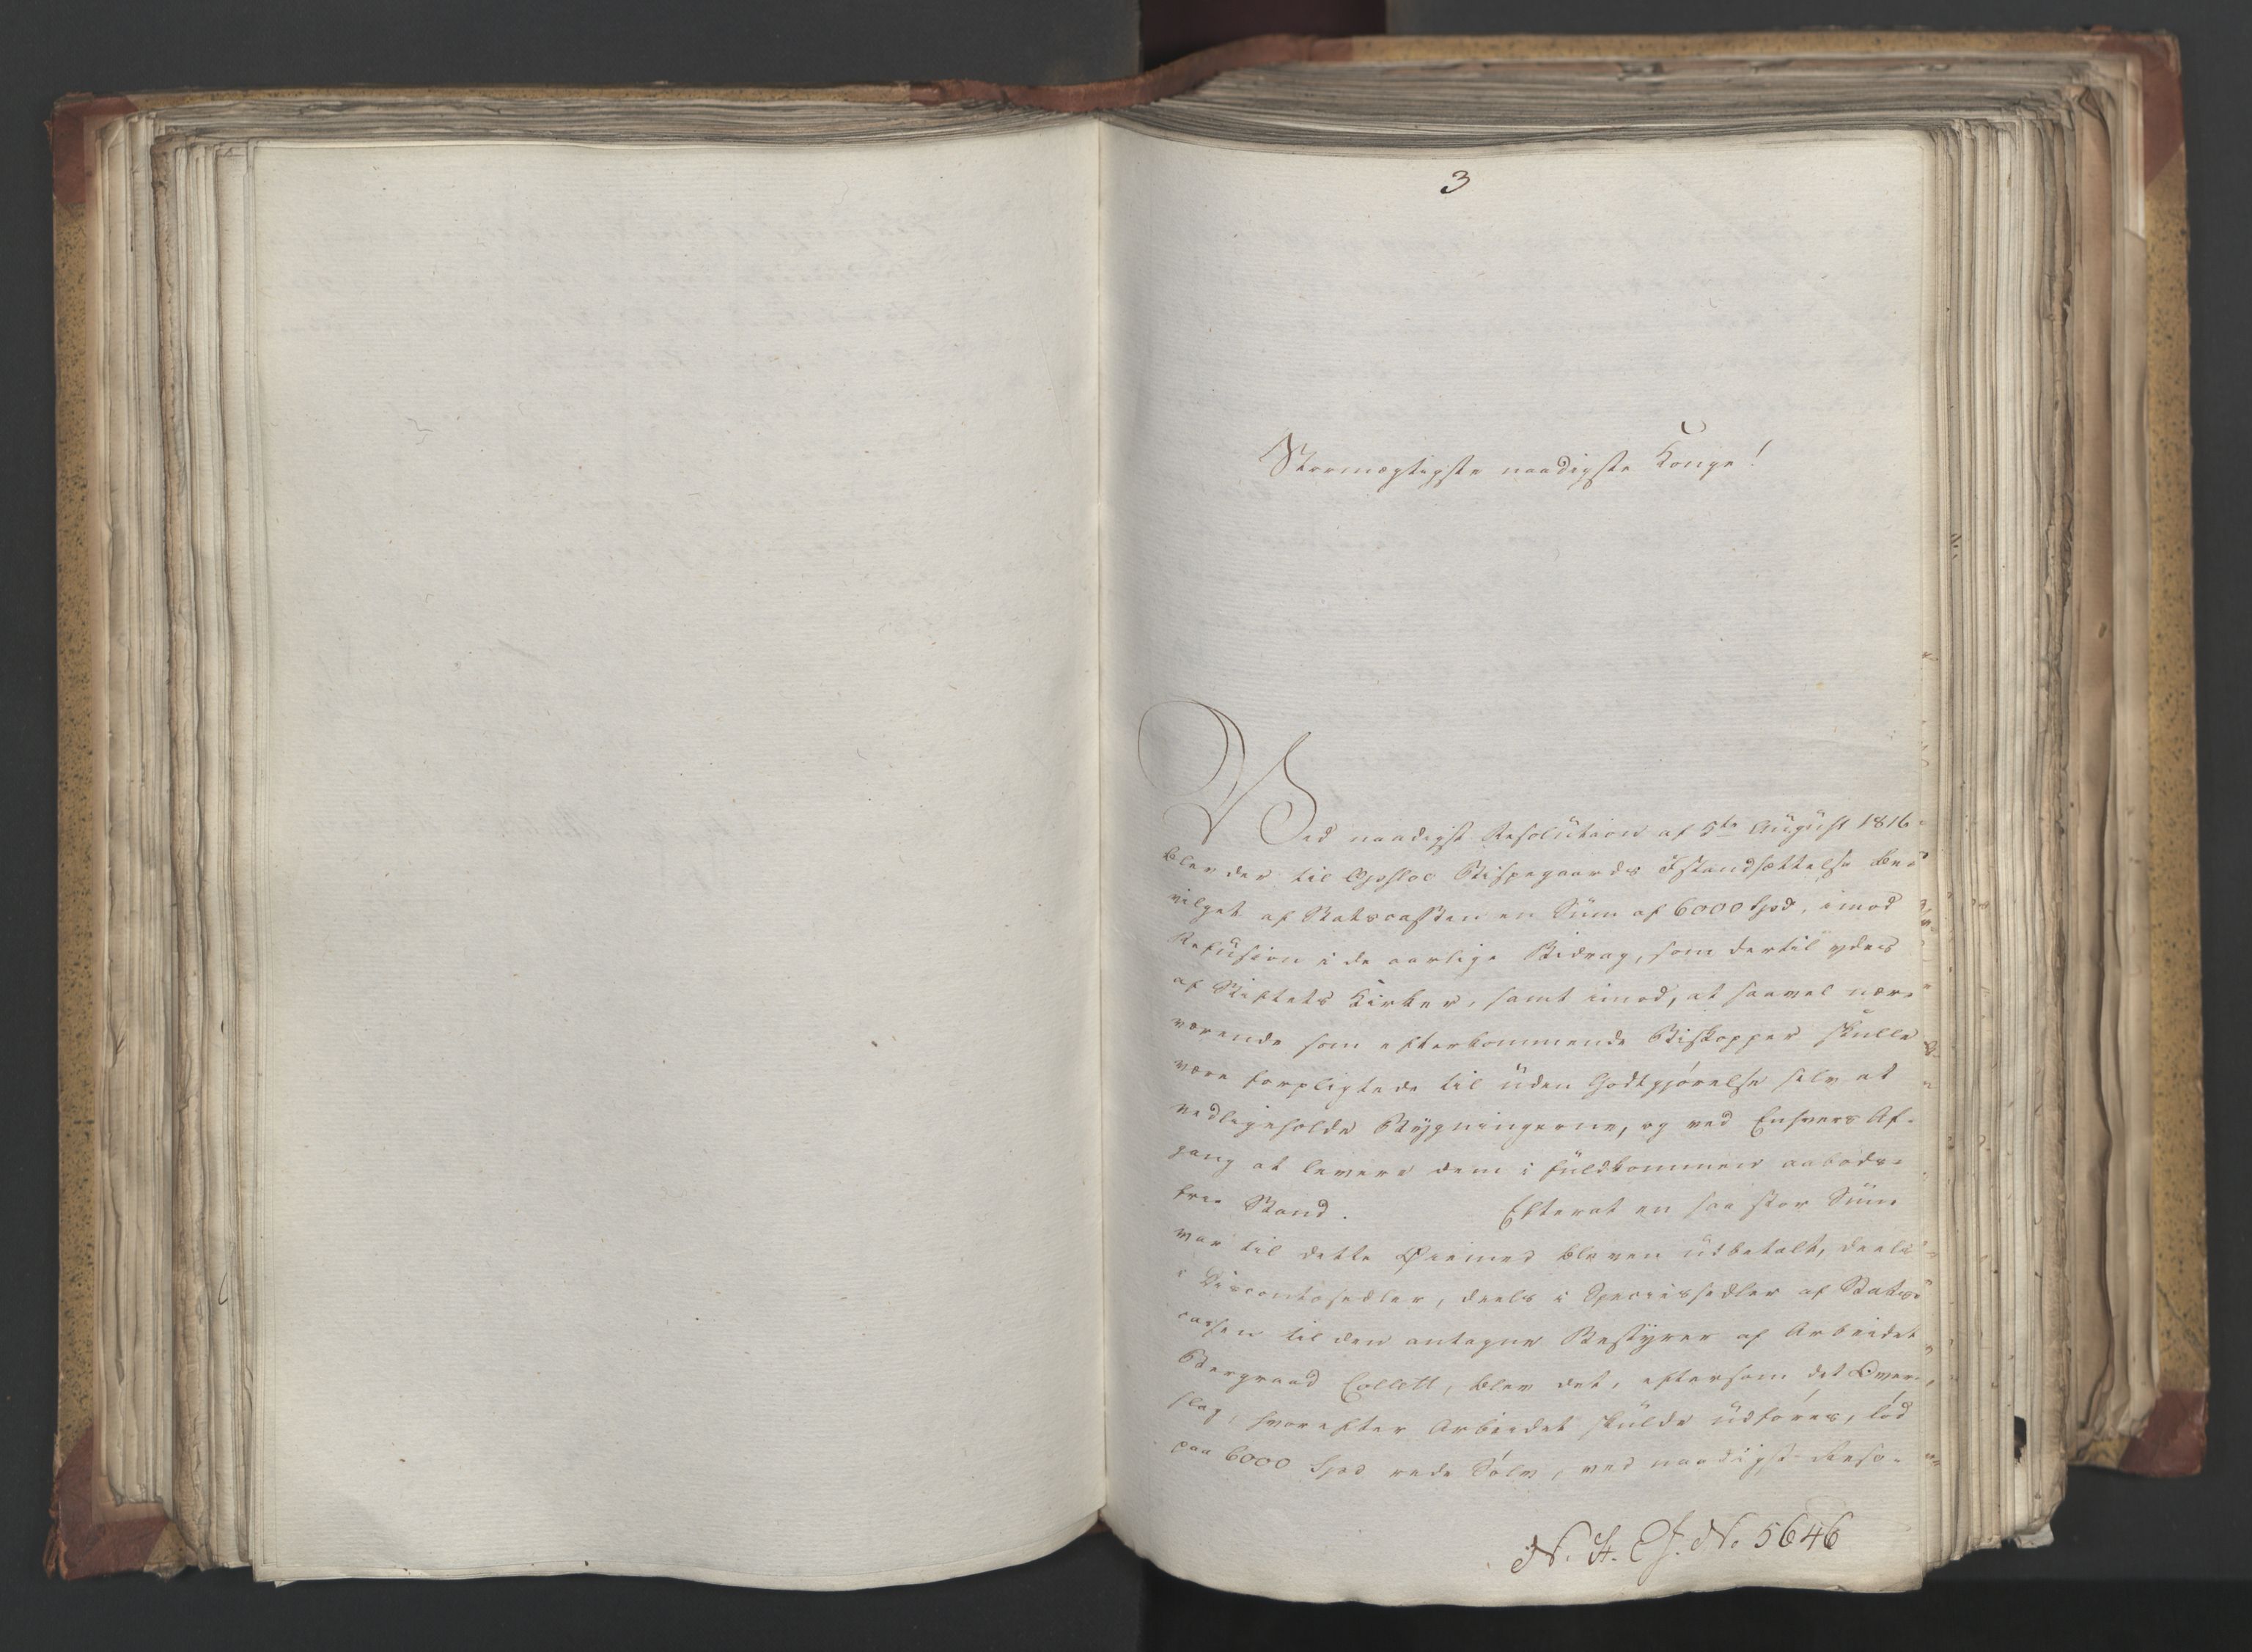 3
Stormægtigste naadigste Konge!
Ved naadigst Resolution af 5te August 1816
blev der til Opsloe Bispegaards Istandsættelse be-
vilget af Statscassen en Sum af 6000 Spd, imod
Refusion i de aarlige Bidrag, som dertil ydes
af Stiftets Kirker, samt imod, at saavel nær-
værende som efterkommende Biskopper skulle
være forpligtede til uden Godtgjørelse selv at
vedligeholde Bygningerne, og ved Enhvers Af-
gang at levere dem i fuldkommen aabods-
frie Stand. Efterat en saa stor Sum
var til dette Øiemed bleven udbetalt, deels
i Discontosedler, deels i Speciessedler af Stats-
cassen til den antagne Bestyrer af Arbeidet
Bergraad Collett, blev det, eftersom det Over-
slag, hvorefter Arbeidet skulde udføres, lød
paa 6000 Spd rede Sølv, ved naadigst Reso-
N. St. Ex. No 5646